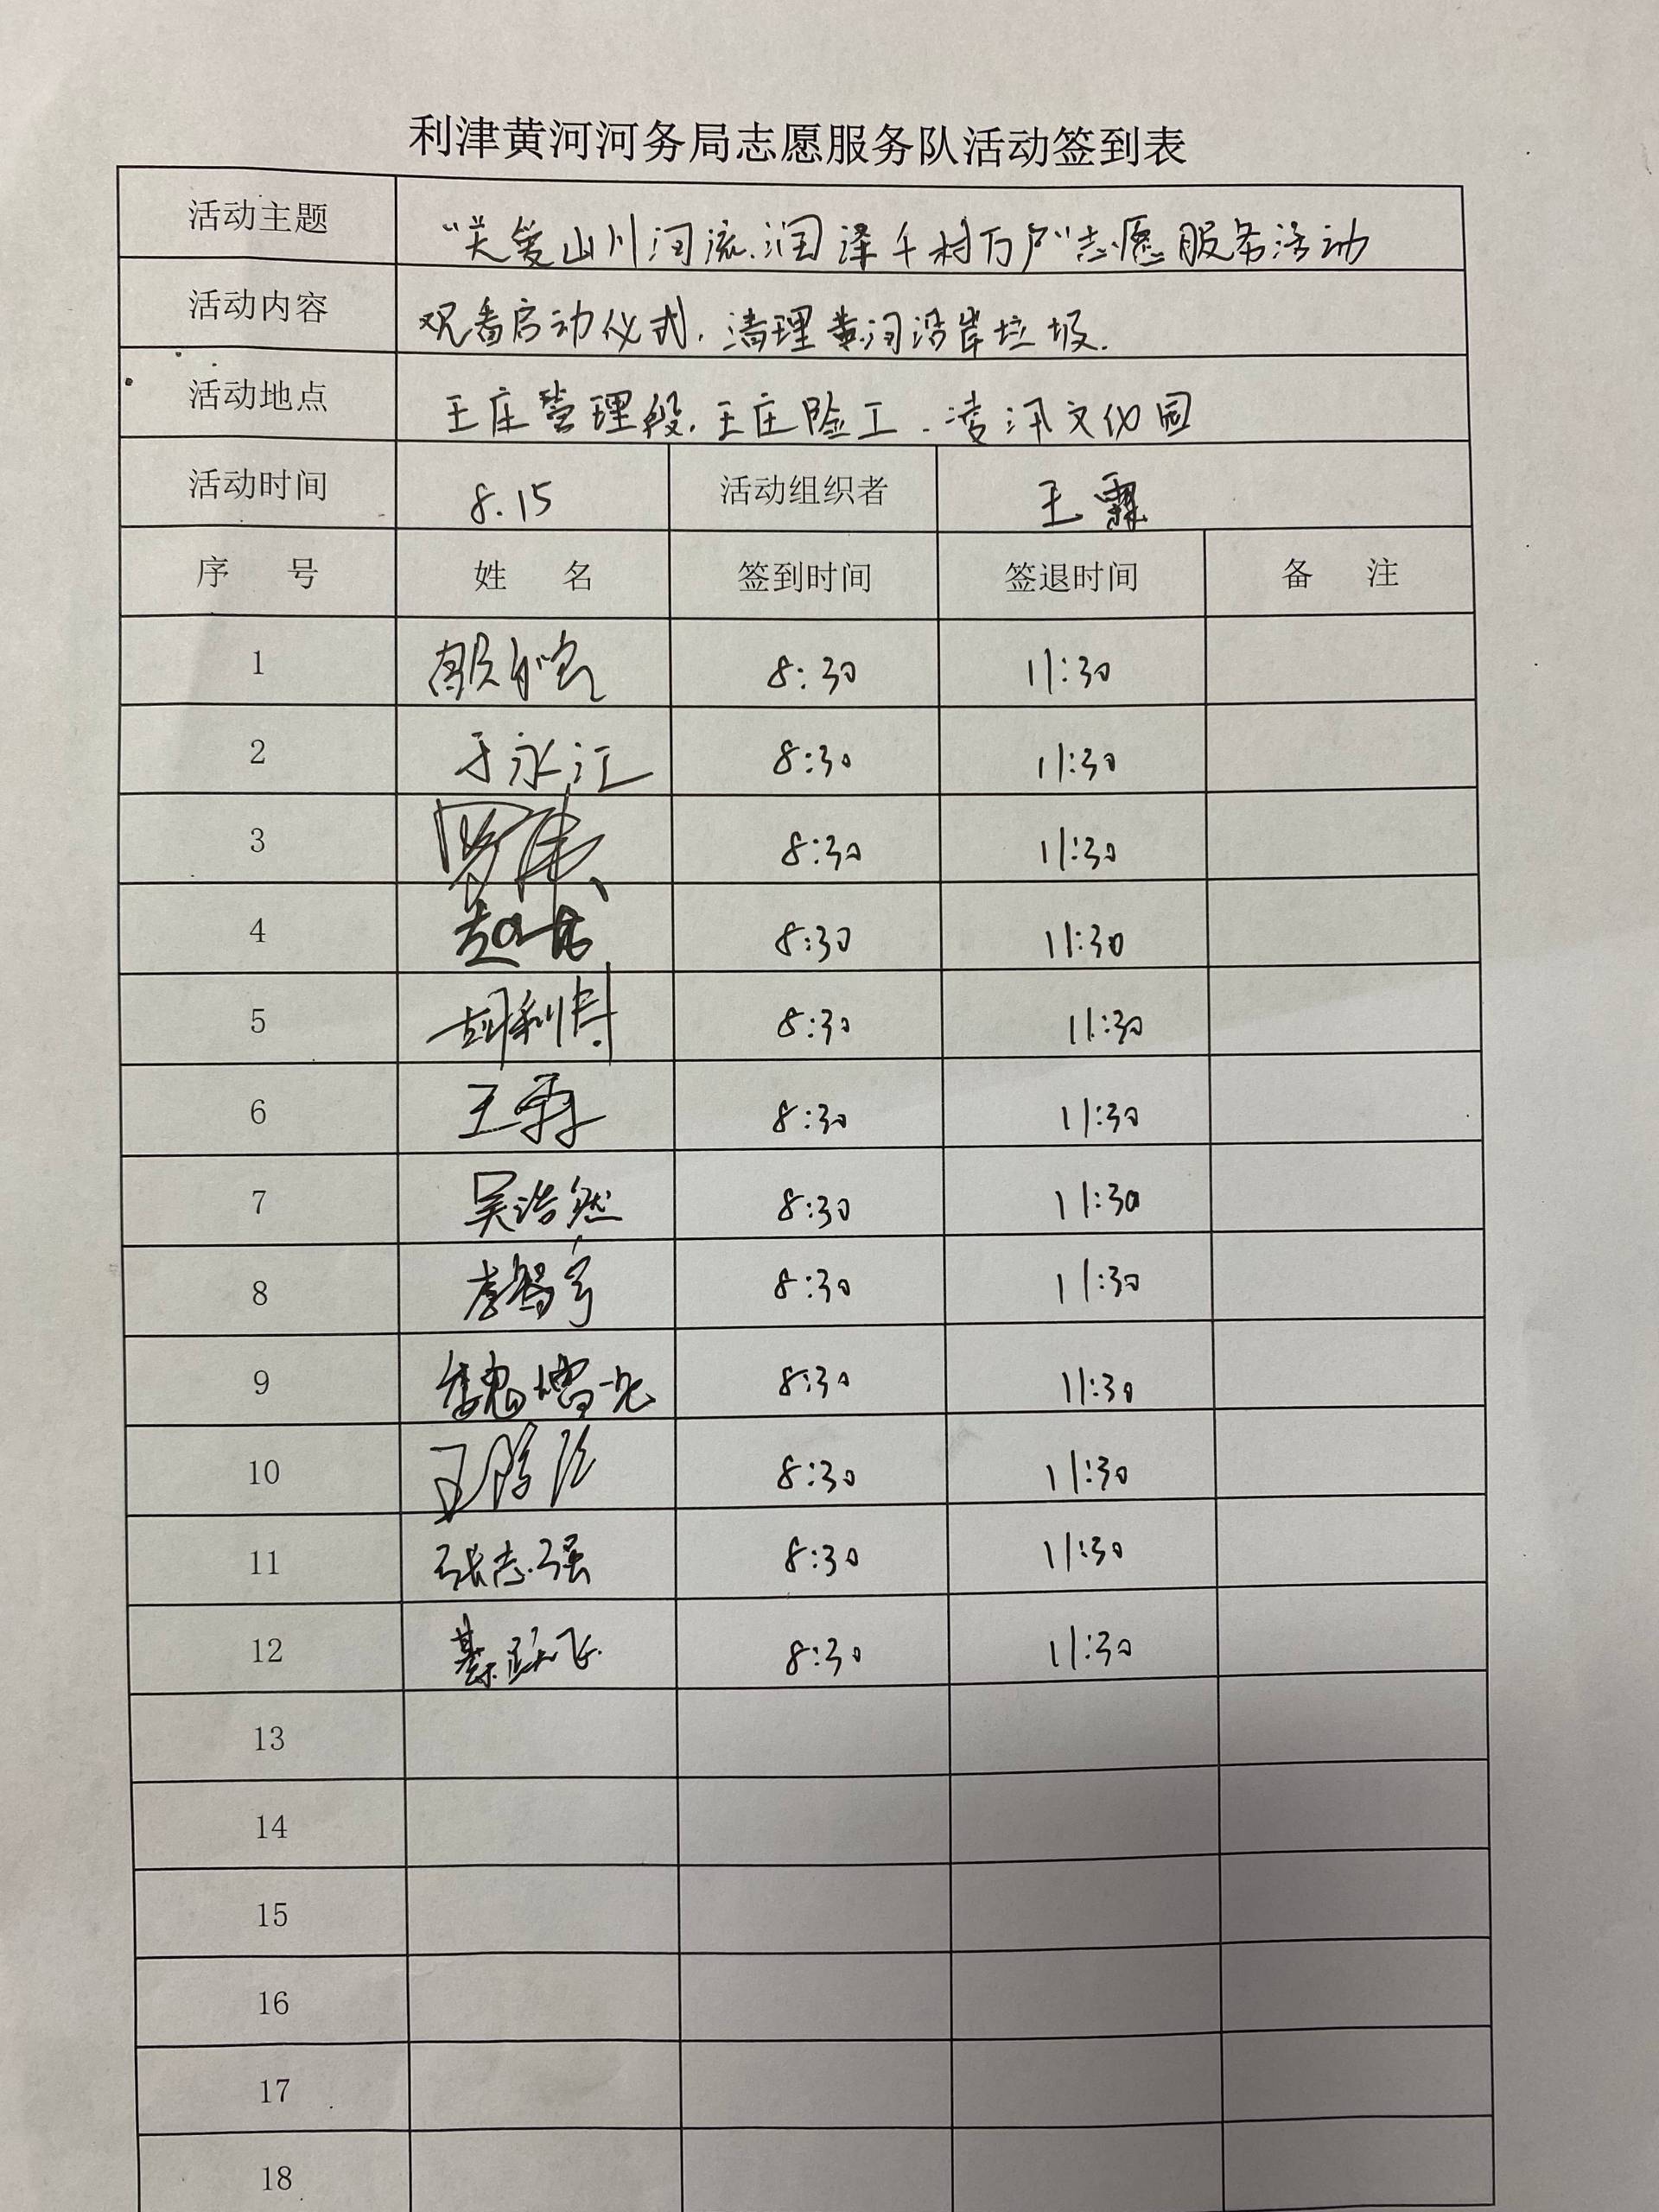 利津黄河河务局志愿服务队活动签到表
活动主题 “关爱山川河流.润泽千村万户”志愿服务活动
活动内容 观看启动仪式.清理黄河沿岸垃圾.
活动地点 王庄管理段.王庄险工.凌汛文化园
活动时间 8.15 活动组织者 王霖
序 号 姓 名 签到时间 签退时间 备 注
1 8:30 11:30
2 于永江 8:30 11:30
3 罗伟 8:30 11:30
4 8:30 11:30
5 胡利 8:30 11:30
6 王霖 8:30 11:30
7 吴浩然 8:30 11:30
8 李 宇 8:30 11:30
9 魏增光 8:30 11:30
10 王 8:30 11:30
11 张志强 8:30 11:30
12 綦 飞 8:30 11:30
13
14
15
16
17
18